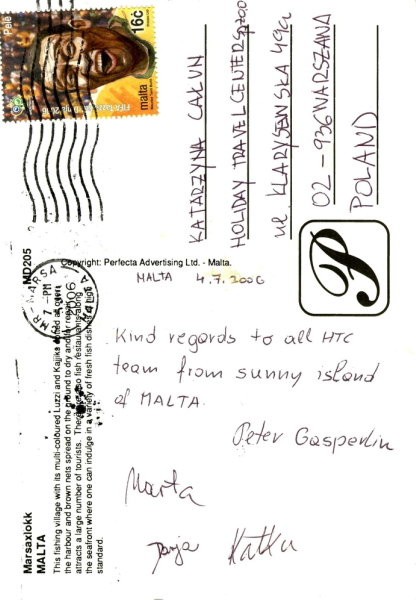 Pelé
16c
malta
MALTA 4.7.2006
Kind regards to all HTC
team from sunny island
of MALTA.
Peter Gasperlin
Marta
Katka
KATARZYNA
HOLIDAY TRAVEL CENTER
ul KLARYSEWSKA 49a
02-936 WARSZAWA
POLAND
P
MD205
Copyright: Perfecta Advertising Ltd. - Malta.
Marsaxlokk
MALTA
This fishing village with its multi-coloured Luzzi and Kajjiks
the harbour and brown nets spread on the ground to dry and
attracts a large number of tourists. There are also fish restaurants along
the seafront where one can indulge in a variety of fresh fish dishes of high
standard.